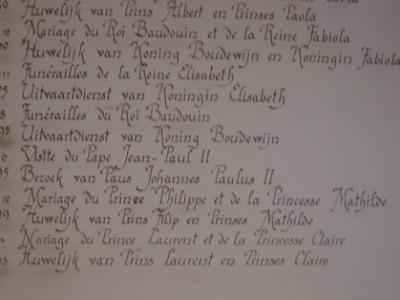 Huwelijk van Prins Albert en Prinses Paola
Mariage du Roi Baudouin et de la Reine Fabiola
Huwelijk van Koning Boudewijn en Koningin Fabiola
Funérailles de la Reine Elisabeth
Uitvaartdienst van Koningin Elisabeth
Funérailles du Roi Baudouin
Uitvaartdienst van Koning Boudewijn
Visite du Pape Jean-Paul II
Bezoek van Paus Johannes Paulus II
Mariage du Prince Philippe et de la Princesse Mathilde
Huwelijk van Prins Filip en Prinses Mathilde
Mariage du Prince Laurent et de la Princesse Claire
Huwelijk van Prins Laurent en Prinses Claire